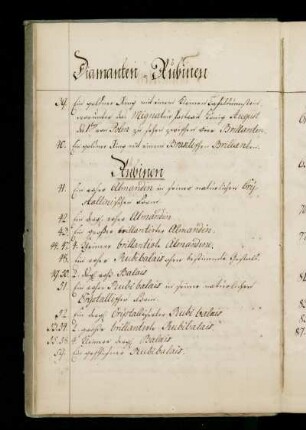 Diamanten u. Rubinen
39. Ein goldner Ring mit einem kleinen Tafeldiamanten,
worunter das Mignatur Portrait König August
des IIten von Polen zu sehen zwischen zwei Brillanten.
40. Ein goldner Ring mit einem Brillanten.
Rubinen
41. Ein roher Almandin in seiner natürlichen Cry-
stallinischen Form.
42. Ein dergl. roher Almandin
43. Ein großer brillantirter Almandin.
44. 47. 4. kleinere brillantirte Almandine.
48. Ein roher Rubi balais ohne bestimmte Gestalt.
49. 50. 2. dergl. rohe Balais
51. Ein roher Rubi balais in seiner natürlichen
Crystallischen Form.
52. Ein dergl. Crystallisirter Rubi balais
53. 54. 2. brillantirte Rubi balais
55. 56. kleinere dergl. Balais
57. Ein geschliffener Rubi balais.